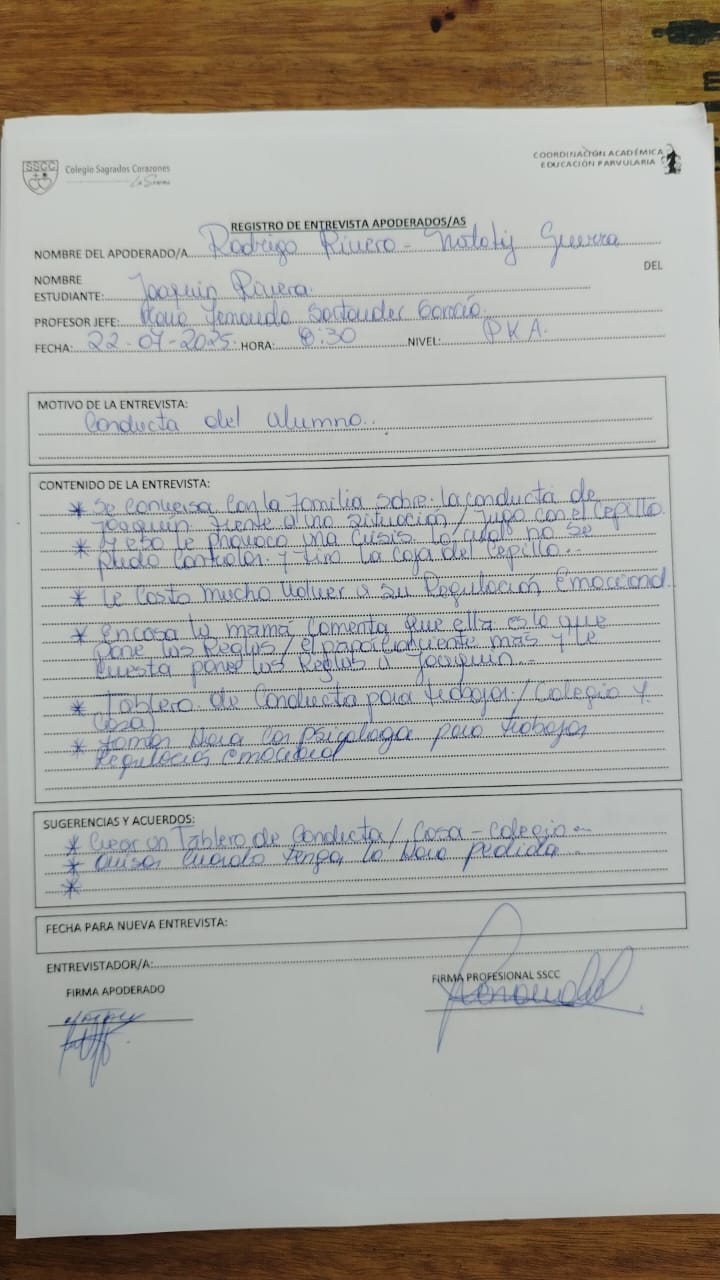 SSCC
Colegio Sagrados Corazones
La Serena
COORDINACIÓN ACADÉMICA
EDUCACIÓN PARVULARIA
REGISTRO DE ENTREVISTA APODERADOS/AS
NOMBRE DEL APODERADO/A Rodrigo Rivera - Nataly Guerra
DEL
NOMBRE
ESTUDIANTE: Joaquin Rivera.
PROFESOR JEFE: Fernanda Santander García.
FECHA: 22-07-2025 HORA: 8:30 NIVEL: PKA.
MOTIVO DE LA ENTREVISTA:
Conducta del alumno.
CONTENIDO DE LA ENTREVISTA:
* Se conversa con la familia sobre la conducta de
Joaquin frente a una situación / Jugo con el Cepillo.
* y eso le provoco una crisis lo cual no se
pudo controlar y tiro la caja del cepillo.
* Le costo mucho volver a su Regulación Emocional.
* en casa la mamá comenta que ella es la que
pone las Reglas / el papá más y le
cuesta poner las Reglas a Joaquin.
* Tablero de Conducta para trabajar / Colegio y
Casa)
* Tomar Hora con psicologa para trabajar
Regulación emocional
SUGERENCIAS Y ACUERDOS:
* Crear un Tablero de Conducta / Casa - Colegio
* avisar cuando tenga la Hora pedida
*
FECHA PARA NUEVA ENTREVISTA:
ENTREVISTADOR/A:
FIRMA APODERADO
FIRMA PROFESIONAL SSCC